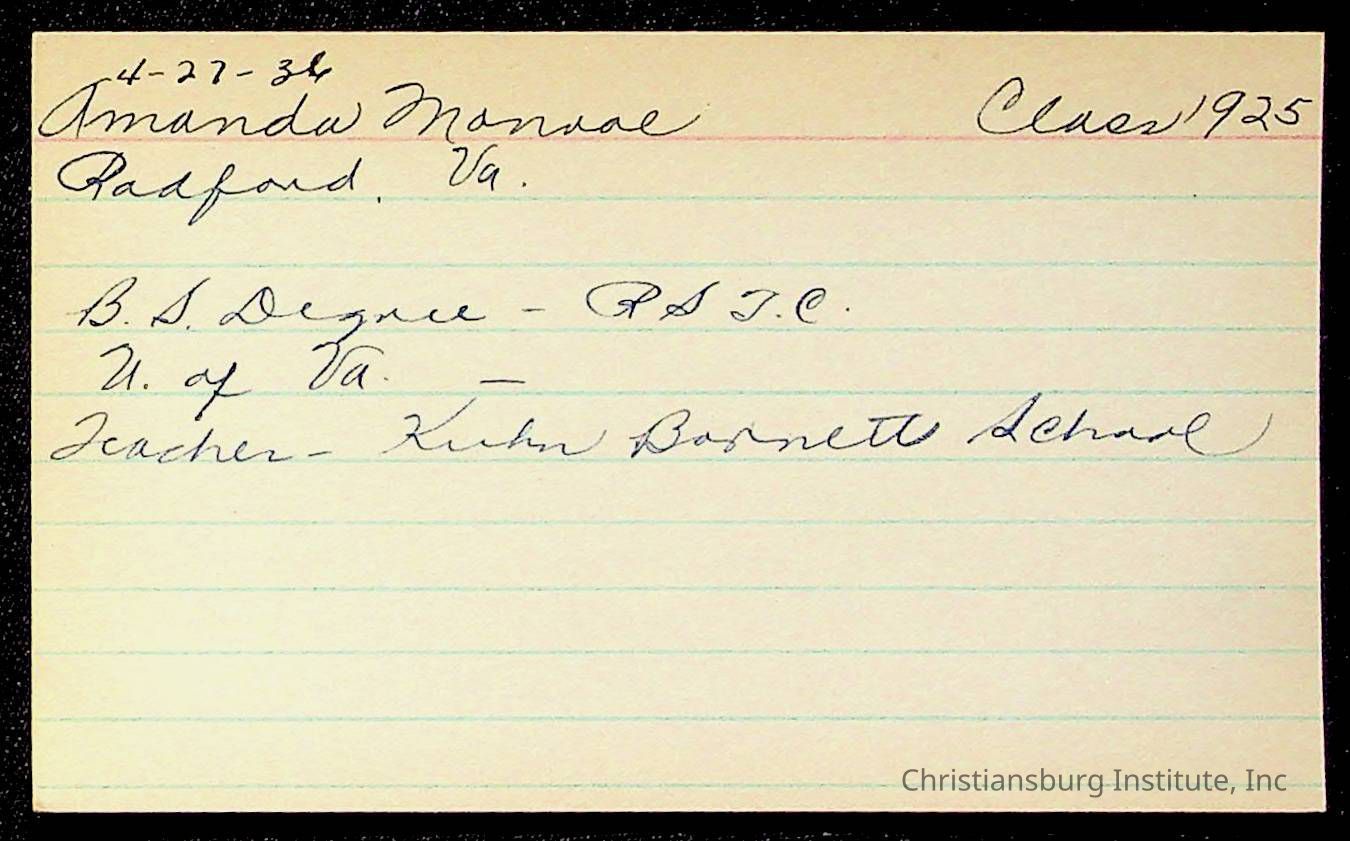 4-27-36
Amanda Monroe Class 1925
Radford, Va.
B. S. Degree - R S T. C.
U. of Va. -
Teacher - Kuhn Barnett School
Christiansburg Institute, Inc